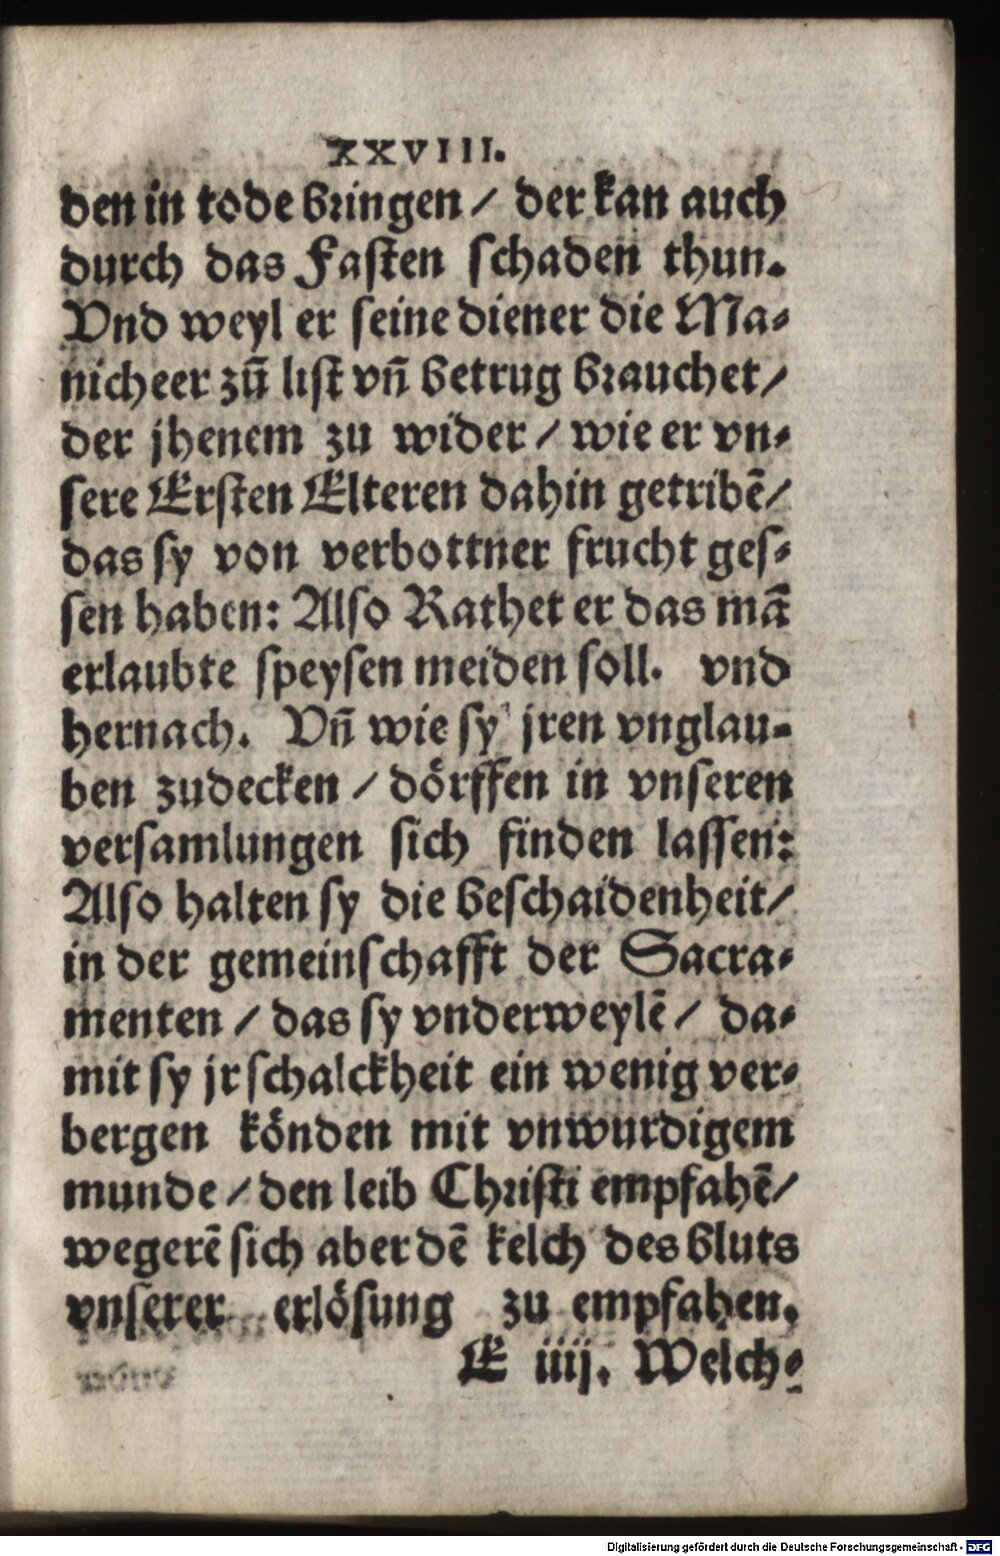 XXVIII.
den in tode bringen / der kan auch
durch das Fasten schaden thun.
Vnd weyl er seine diener die Ma-
nicheer zů list vñ betrug brauchet /
der jhenem zu wider / wie er vn-
sere Ersten Elteren dahin getribẽ /
das sy von verbottner frucht ges-
sen haben: Also Rathet er das mã
erlaubte speysen meiden soll. vnd
hernach. Vñ wie sy jren vnglau-
ben zudecken / dörffen in vnseren
versamlungen sich finden lassen:
Also halten sy die beschaidenheit /
in der gemeinschafft der Sacra-
menten / das sy vnderweylẽ / da-
mit sy jr schalckheit ein wenig ver-
bergen könden mit vnwurdigem
munde / den leib Christi empfahẽ /
wegerẽ sich aber dẽ kelch des bluts
vnserer erlösung zu empfahen.
E iiij. Welch-
Digitalisierung gefördert durch die Deutsche Forschungsgemeinschaft - DFG